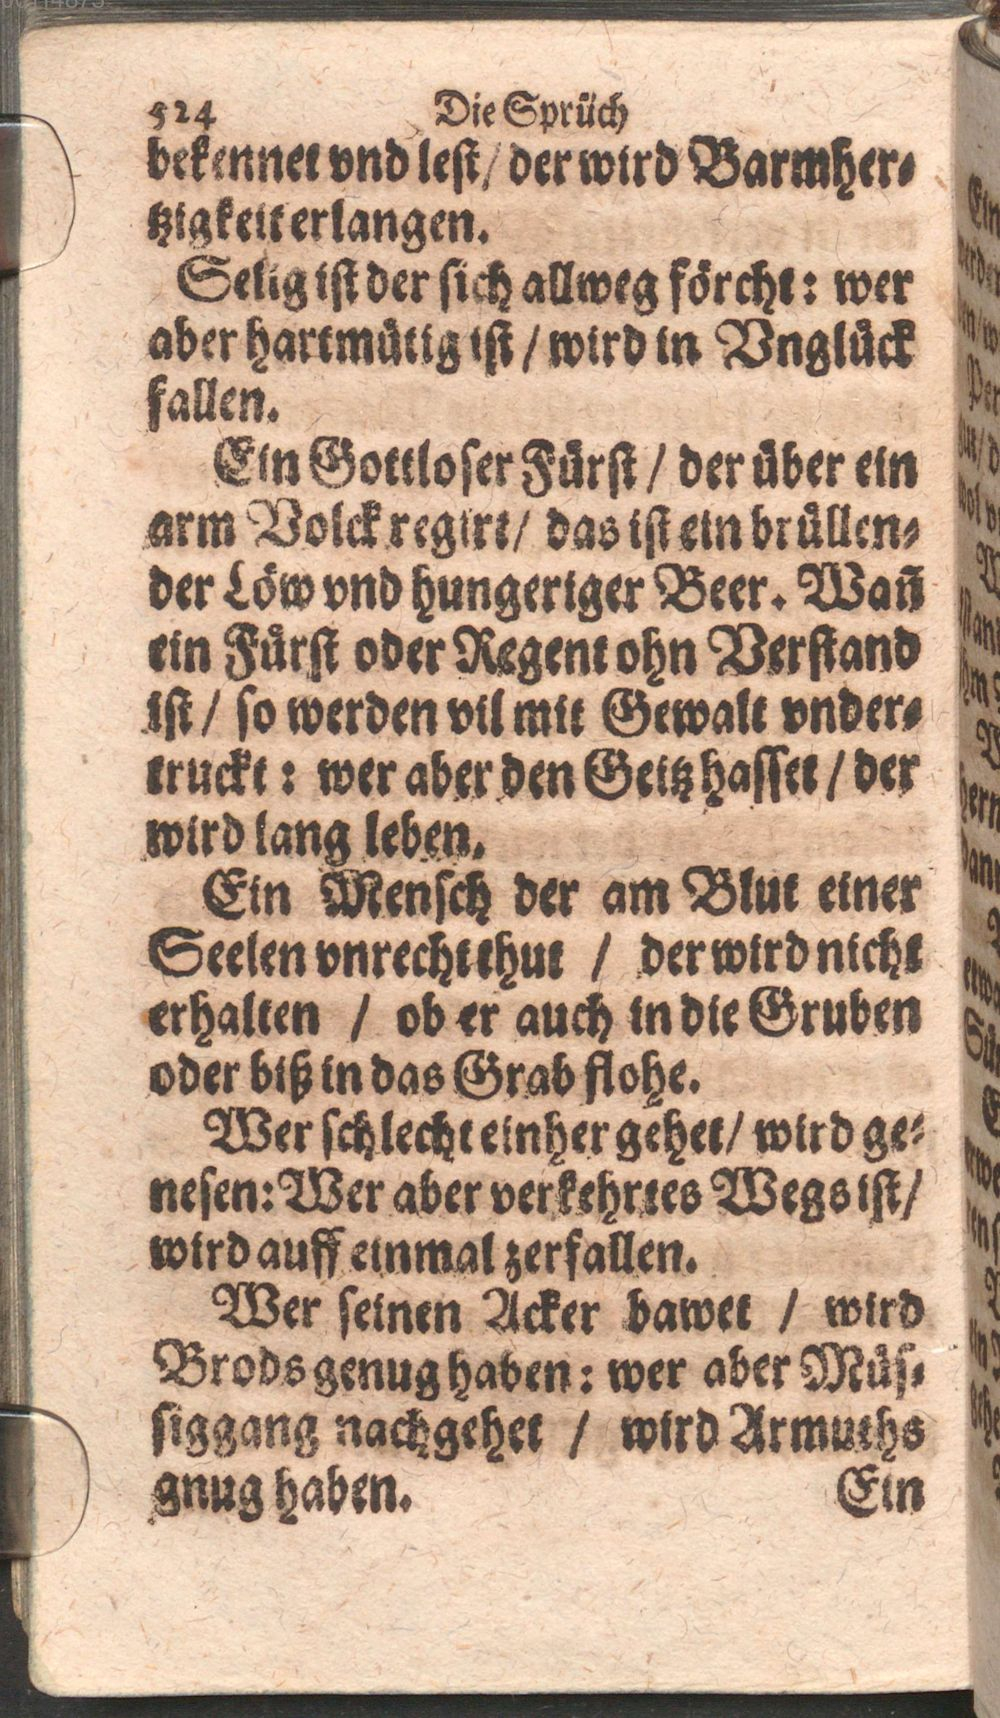 524 Die Sprüch
bekennet vnd lest/ der wird Barmher-
tzigkeit erlangen.
Selig ist der sich allweg förcht: wer
aber hartmütig ist / wird in Vnglück
fallen.
Ein Gottloser Fürst / der über ein
arm Volck regirt/ das ist ein brüllen-
der Löw vnd hungeriger Beer. Wañ
ein Fürst oder Regent ohn Verstand
ist / so werden vil mit Gewalt vnder-
truckt: wer aber den Geitz hasset / der
wird lang leben.
Ein Mensch der am Blut einer
Seelen vnrecht thut / der wird nicht
erhalten / ob er auch in die Gruben
oder biß in das Grab flohe.
Wer schlecht einher gehet/ wird ge-
nesen: Wer aber verkehrtes Wegs ist/
wird auff einmal zerfallen.
Wer seinen Acker bawet / wird
Brods genug haben: wer aber Müs-
siggang nachgehet / wird Armuths
gnug haben. Ein